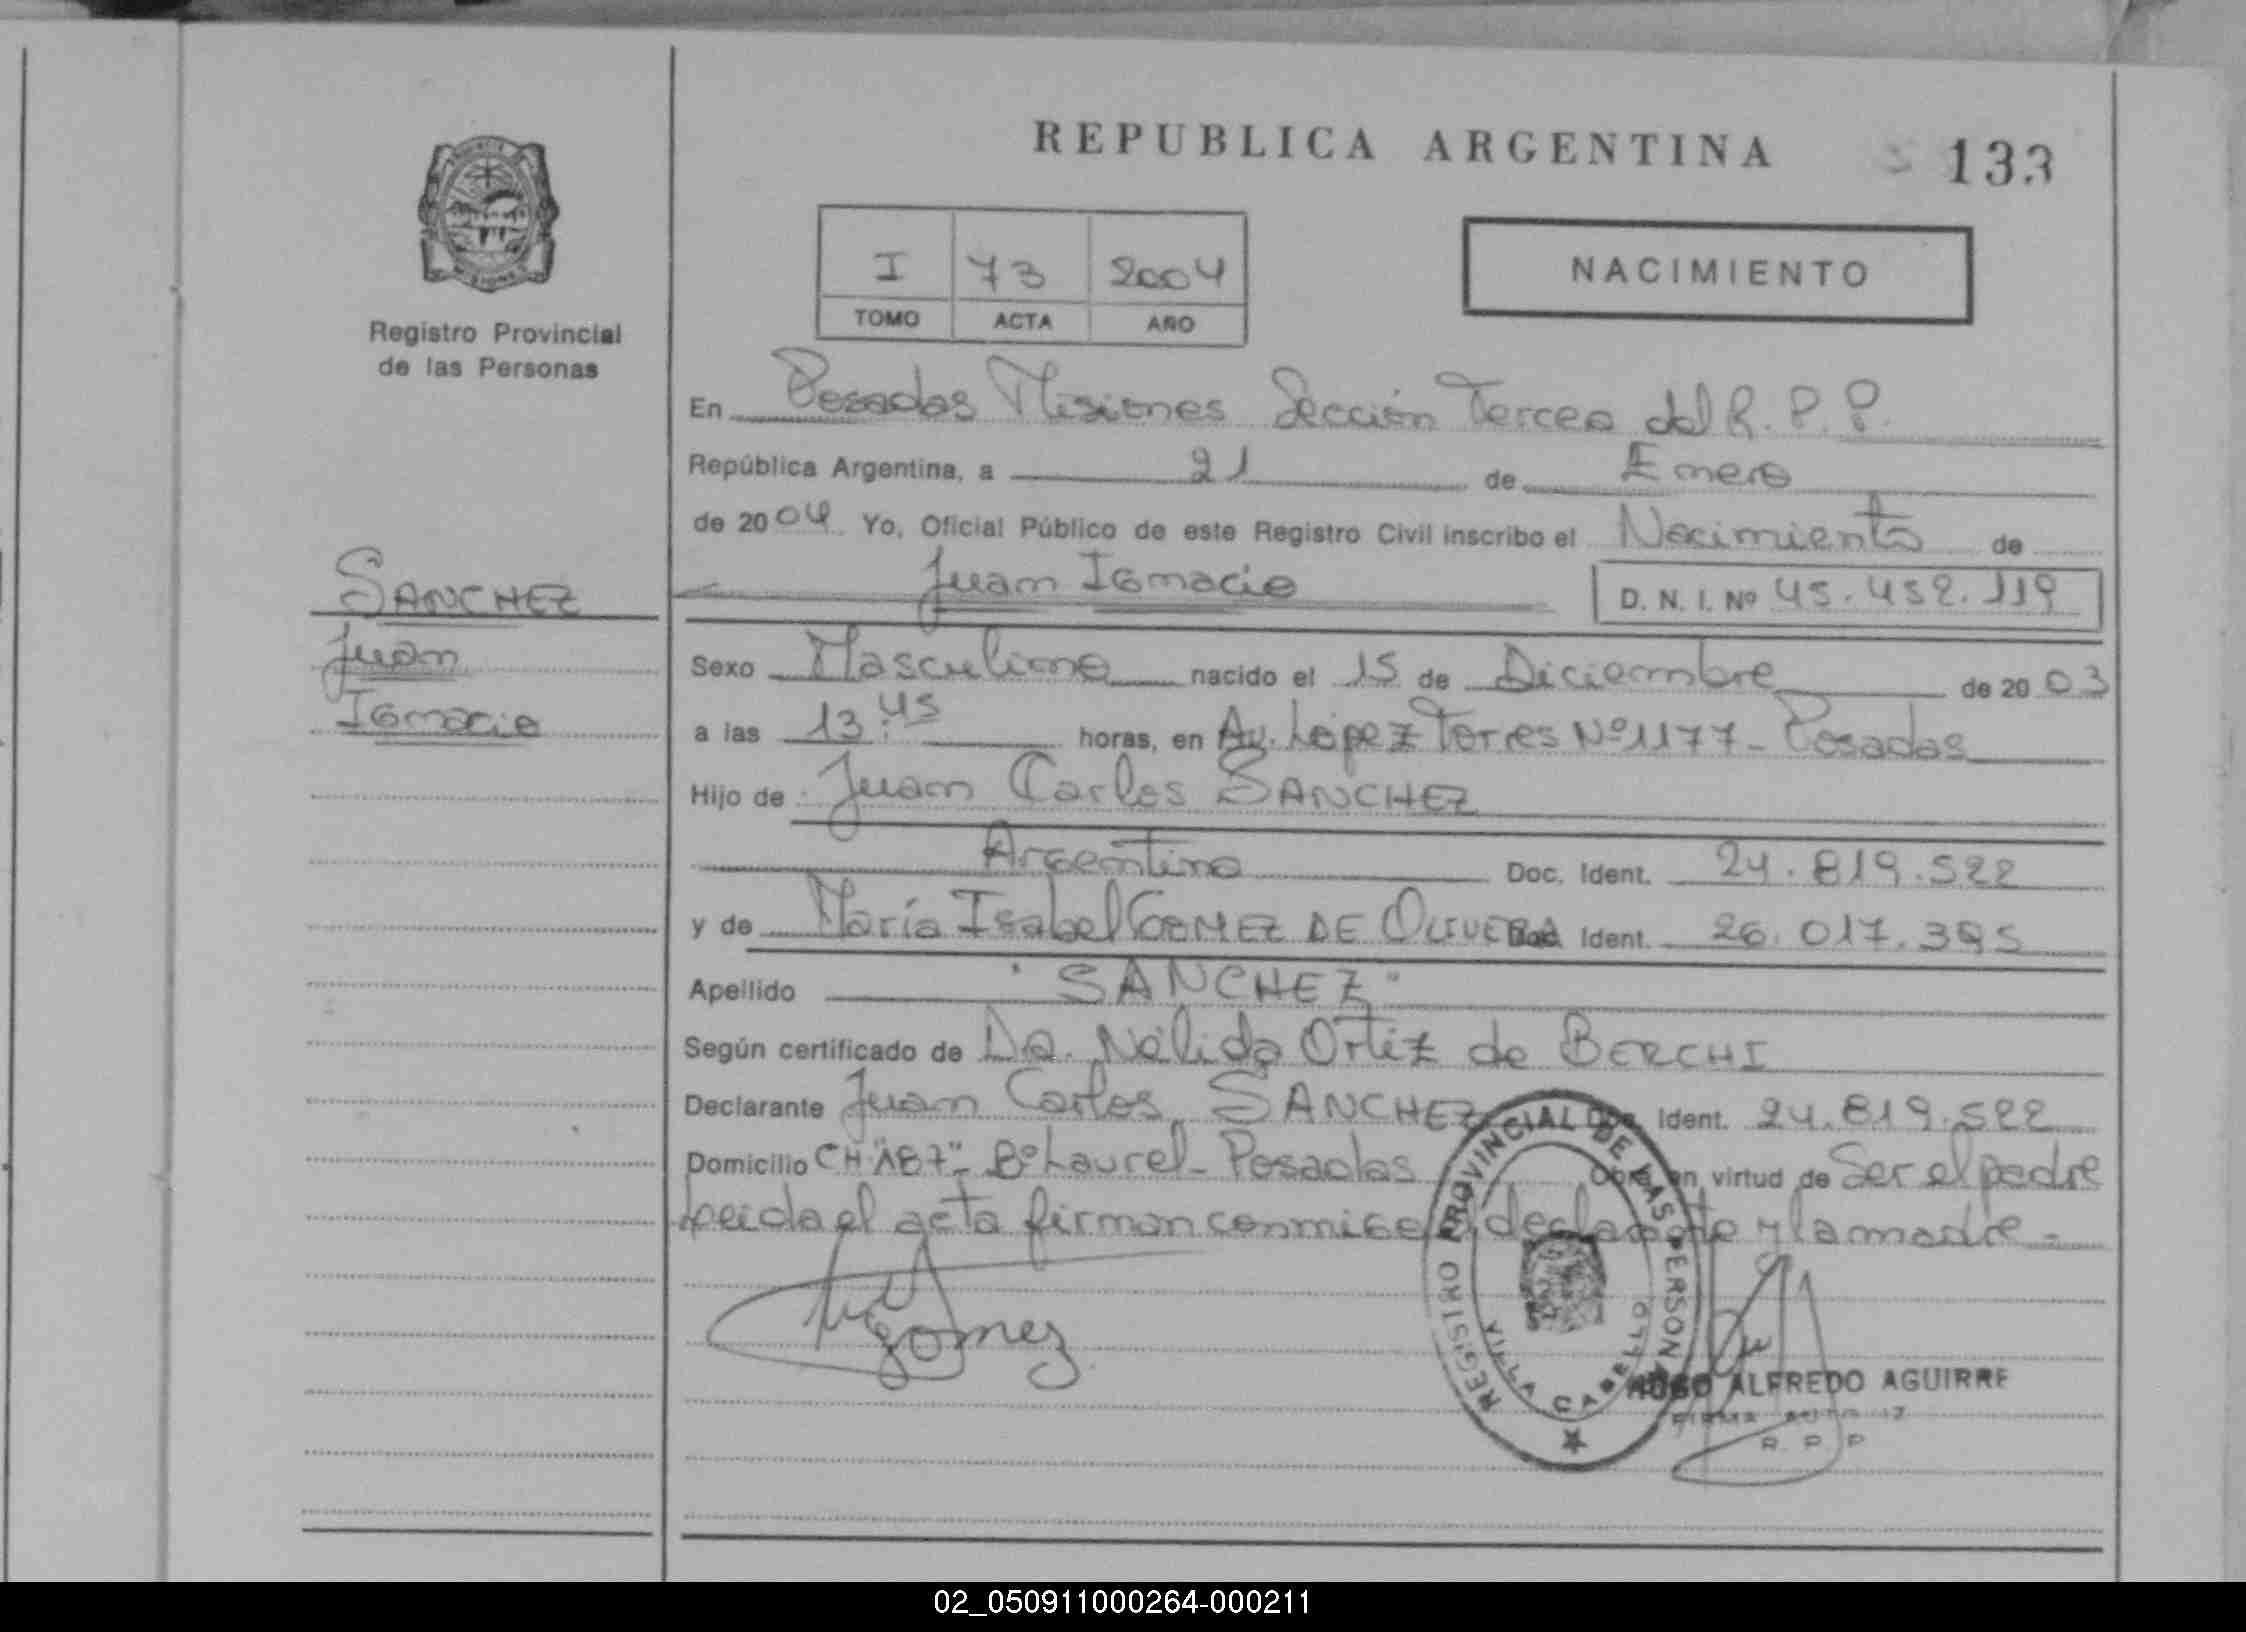 REPUBLICA ARGENTINA
133
I 73 2004
TOMO ACTA AÑO
NACIMIENTO
Registro Provincial
de las Personas
En Posadas Misiones Sección Tercera del R. P. P.
República Argentina, a 21 de Enero
de 2004 Yo, Oficial Público de este Registro Civil inscribo el Nacimiento de
Juan Ignacio D. N. I. Nº 45.452.119
SANCHEZ
Juan
Ignacio
Sexo Masculino nacido el 15 de Diciembre de 2003
a las 13:45 horas, en Av. López Torres Nº 1177 - Posadas
Hijo de Juan Carlos SANCHEZ
Argentino Doc. Ident. 24.819.522
y de María Isabel GOMEZ DE OLIVERA Doc. Ident. 26.017.395
Apellido "SANCHEZ"
Según certificado de Da. Nélida Ortiz de BERCHI
Declarante Juan Carlos SANCHEZ Doc. Ident. 24.819.522
Domicilio CH "187" - Bº Laurel - Posadas Obra en virtud de Ser el padre
Leida el acta firman conmigo el declarante y la madre -
Gomez
REGISTRO PROVINCIAL DE LAS PERSONAS
VILLA CABELLO
HUGO ALFREDO AGUIRRE
R. P. P
02_050911000264-000211